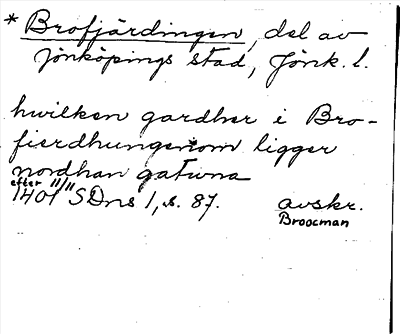 * Brofjärdingen, del av
Jönköpings stad, Jönk. l.
hwilken gardher i Bro-
fierdhungenom ligger
nordhan gatwna
efter 11/11
1401 SDns 1, s. 87. avskr.
Broocman